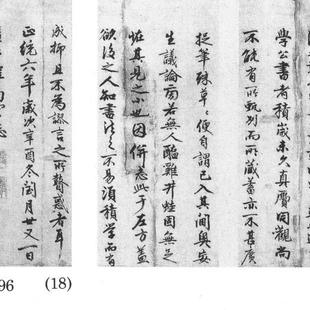 學公書者積歲未久真贋同觀尚
不能有所甄別而所藏書亦不甚廣
捉筆殊草〻便自謂已入其間奥妄
生議論旁若無人醯雞井蛙固無足
怪其見之小也因併志此于左方蓋
欲後之人知書法之不易須積學而有
成抑且不為謬言之所瞽惑者耳
正統六年歲次辛酉冬閏月廿又一日
96 (18)